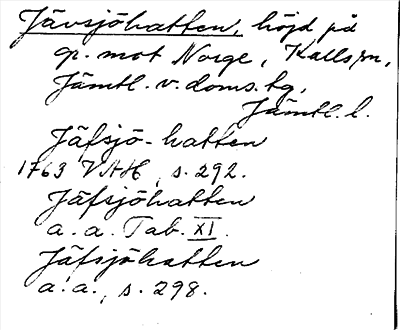 Jävsjöhatten, höjd på
gr. mot Norge, Kalls sn,
Jämtl. v. doms. tg,
Jämtl. l.
Jäfsjö-hatten
1763 VAH, s. 292.
Jäfsjöhatten
a. a. Tab. XI.
Jäfsjöhatten
a. a., s. 298.